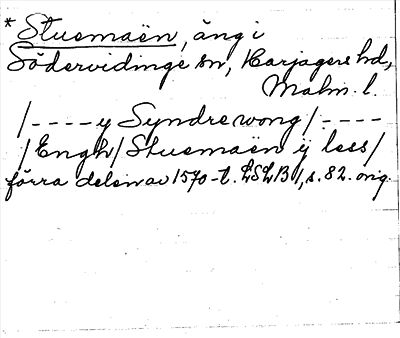 * Stusmaën, äng i
Södervidinge sn, Harjagers hd,
Malm. l.
/ - - - - y Syndre wong / - - - -
/ Engh / Stusmaën ij less /
förra delen av 1570-t. LSLB 1, s. 82. orig.